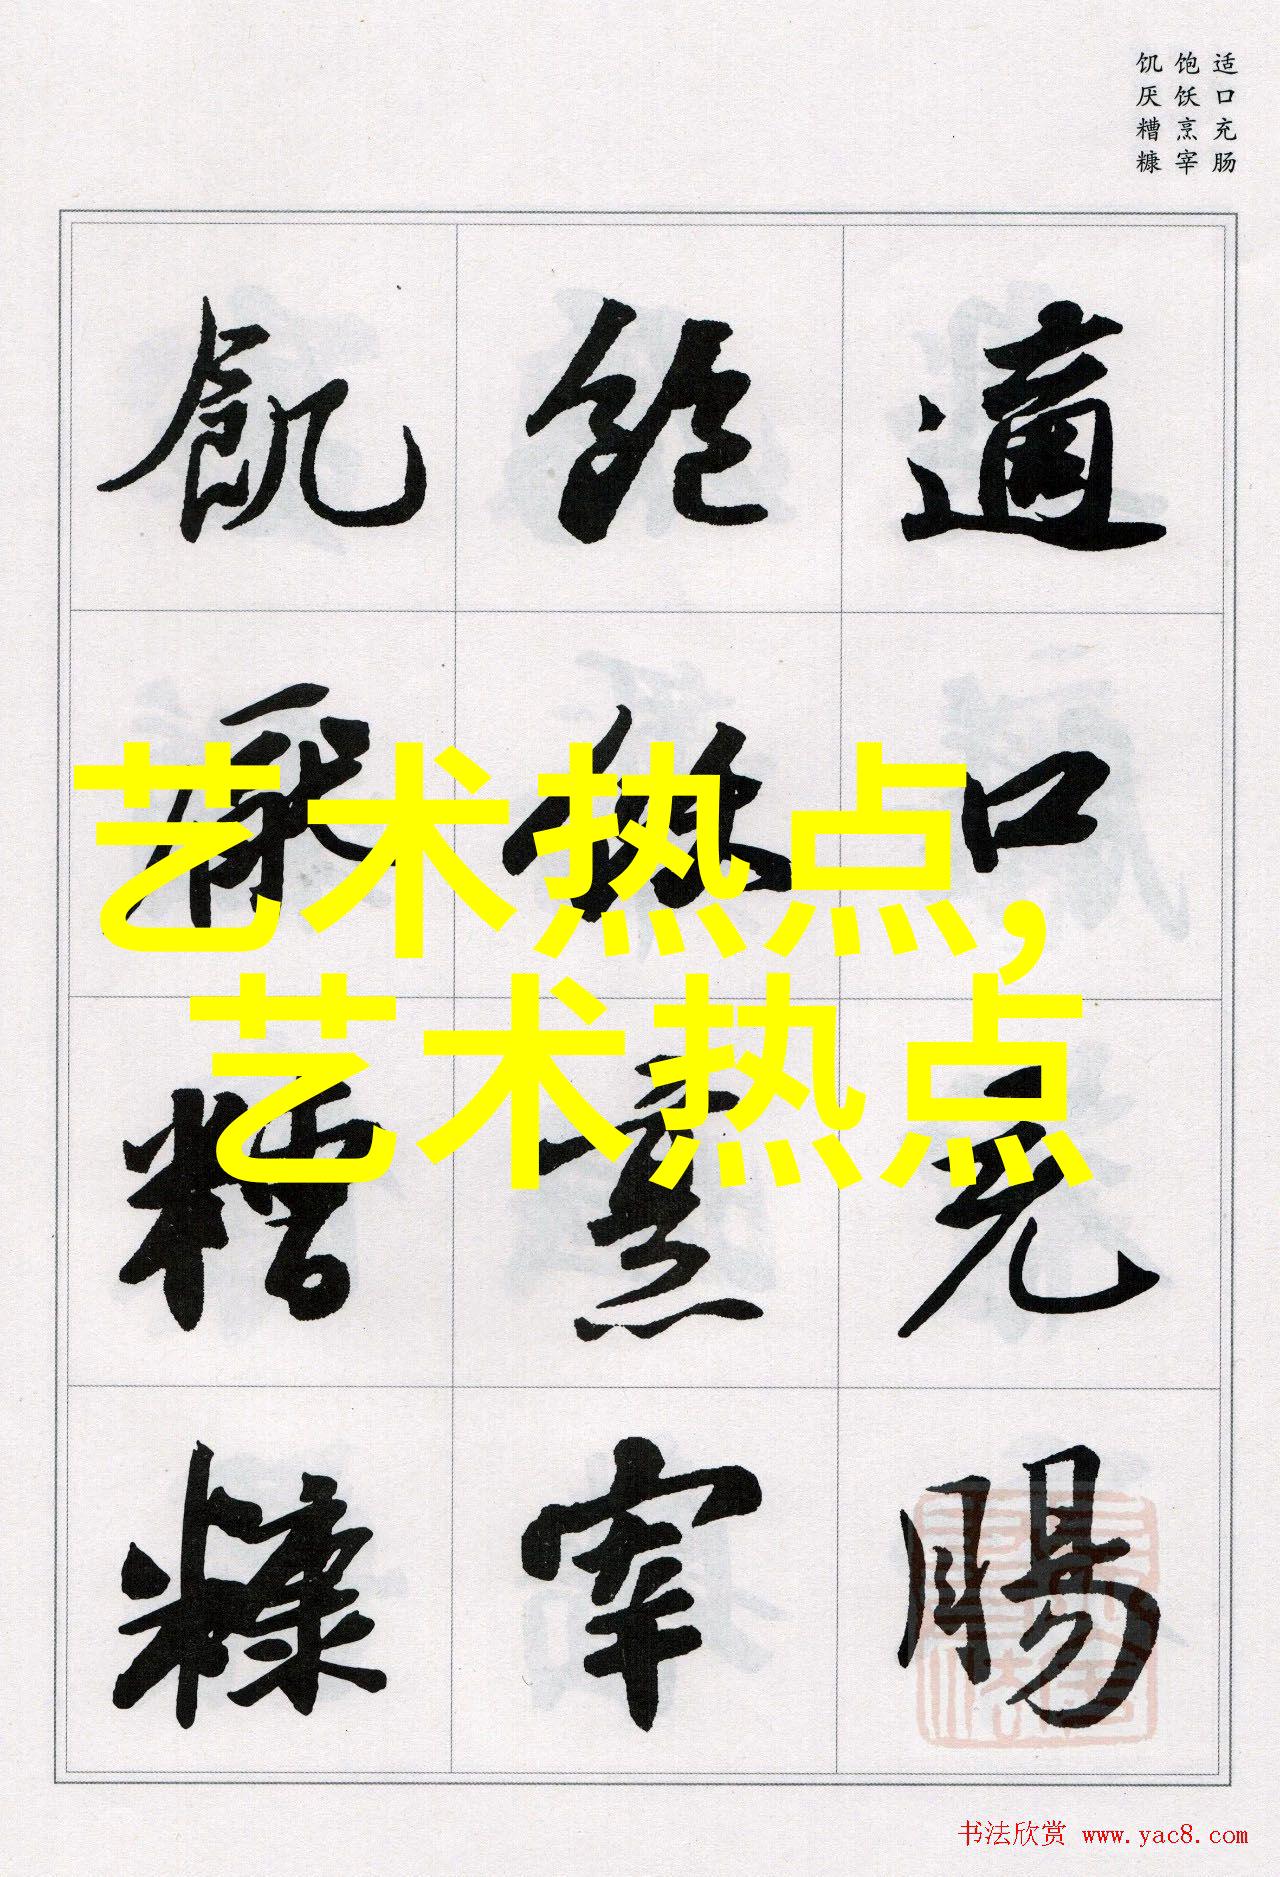 适口充肠
饱饫烹宰
饥厌糟糠
適口充腸
飽飫烹宰
飢厭糟糠
艺术热点,
艺术热点
书法欣赏 www.yac8.com